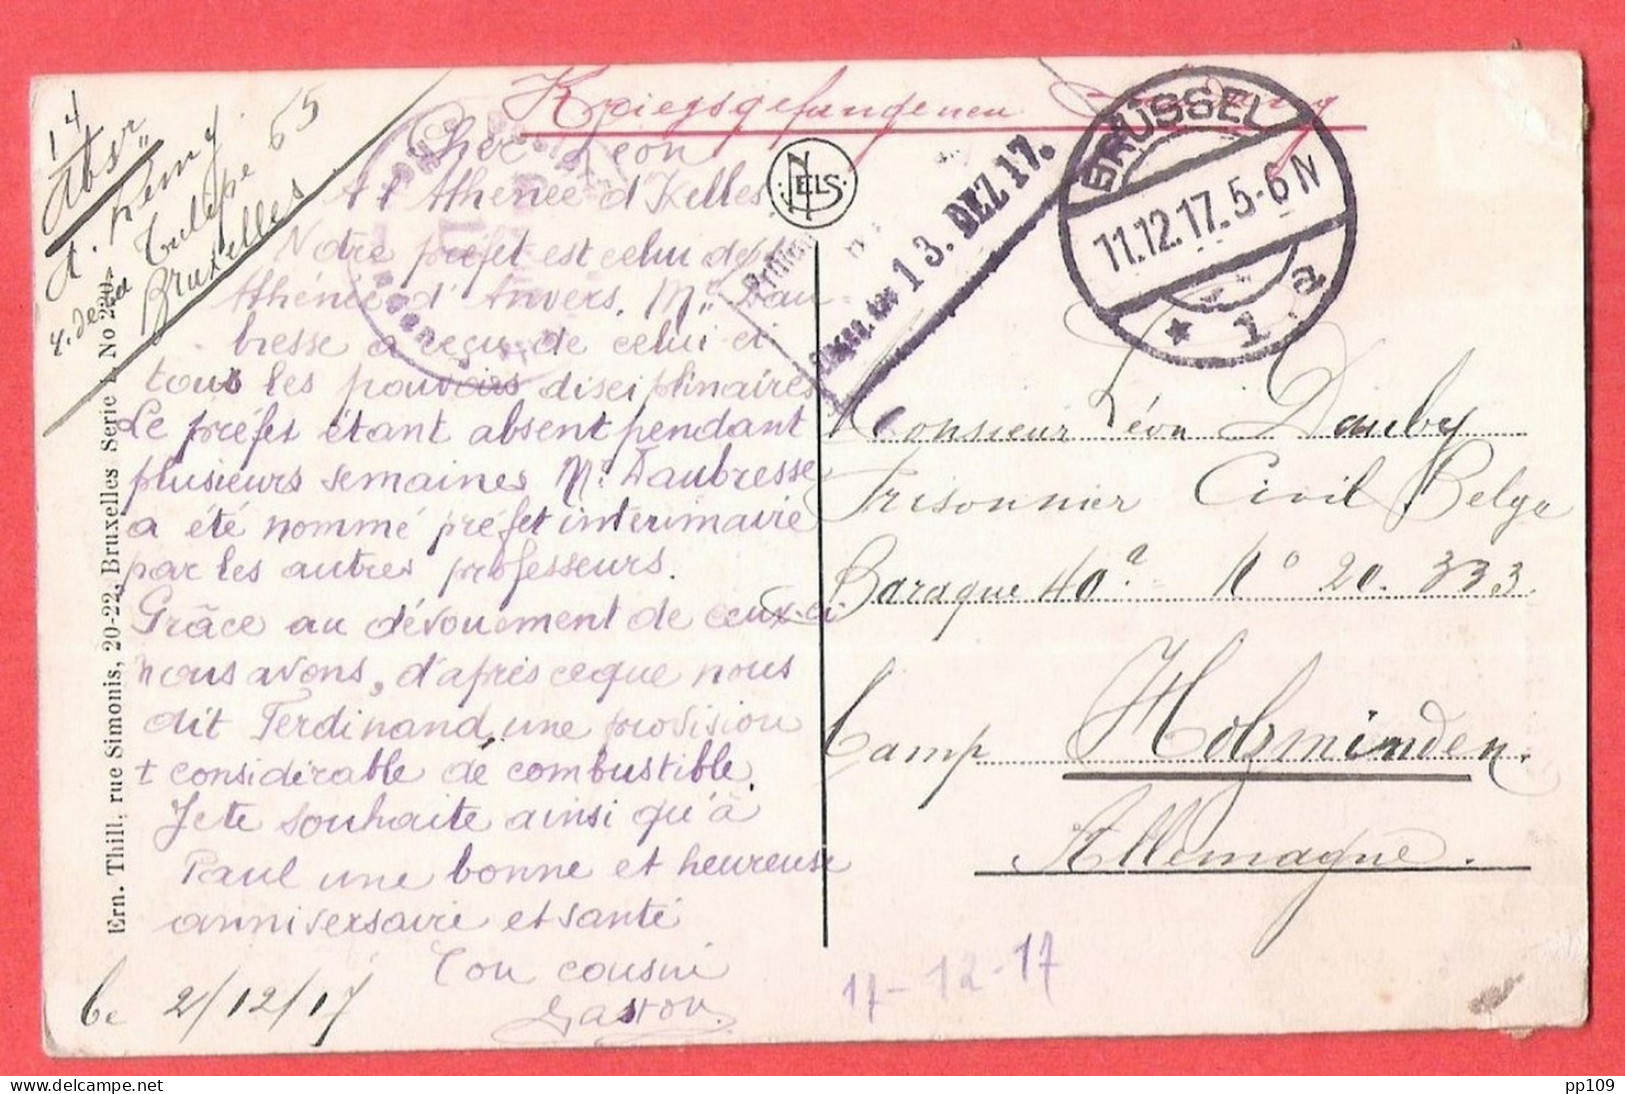 Kriegsgefangenen Sendung
14
Abs.
A. Remy
r. de la Tulipe 65
Bruxelles
Cher Léon
A l'Athénée d'Ixelles
Notre préfet est celui de l'
Athénée d'Anvers. Mr Dau-
bresse a reçu de celui ci
tous les pouvoirs disciplinaires
Le préfet étant absent pendant
plusieurs semaines Mr Daubresse
a été nommé préfet interimaire
par les autres professeurs.
Grâce au dévouement de ceux-ci
nous avons, d'après ce que nous
dit Ferdinand, une provision
+ considérable de combustible.
Je te souhaite ainsi qu'à
Paul une bonne et heureuse
anniversaire et santé
Ton cousin
Gaston.
Le 2/12/17
Ern. Thill, rue Simonis, 20-22, Bruxelles Serie 1, No 220
NELS
13. DEZ 17.
BRÜSSEL
11.12.17. 5-6 N
* 1 d
Monsieur Léon Dauby
Prisonnier Civil Belge
Baraque 40a - No 20.333
Camp Holzminden.
Allemagne.
17-12-17
pp109